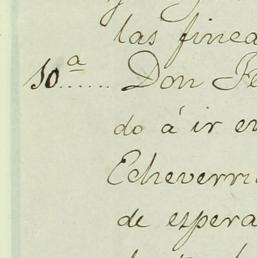 las finca
10ª...... Don Fe
do á ir en
Echeverri
de espera